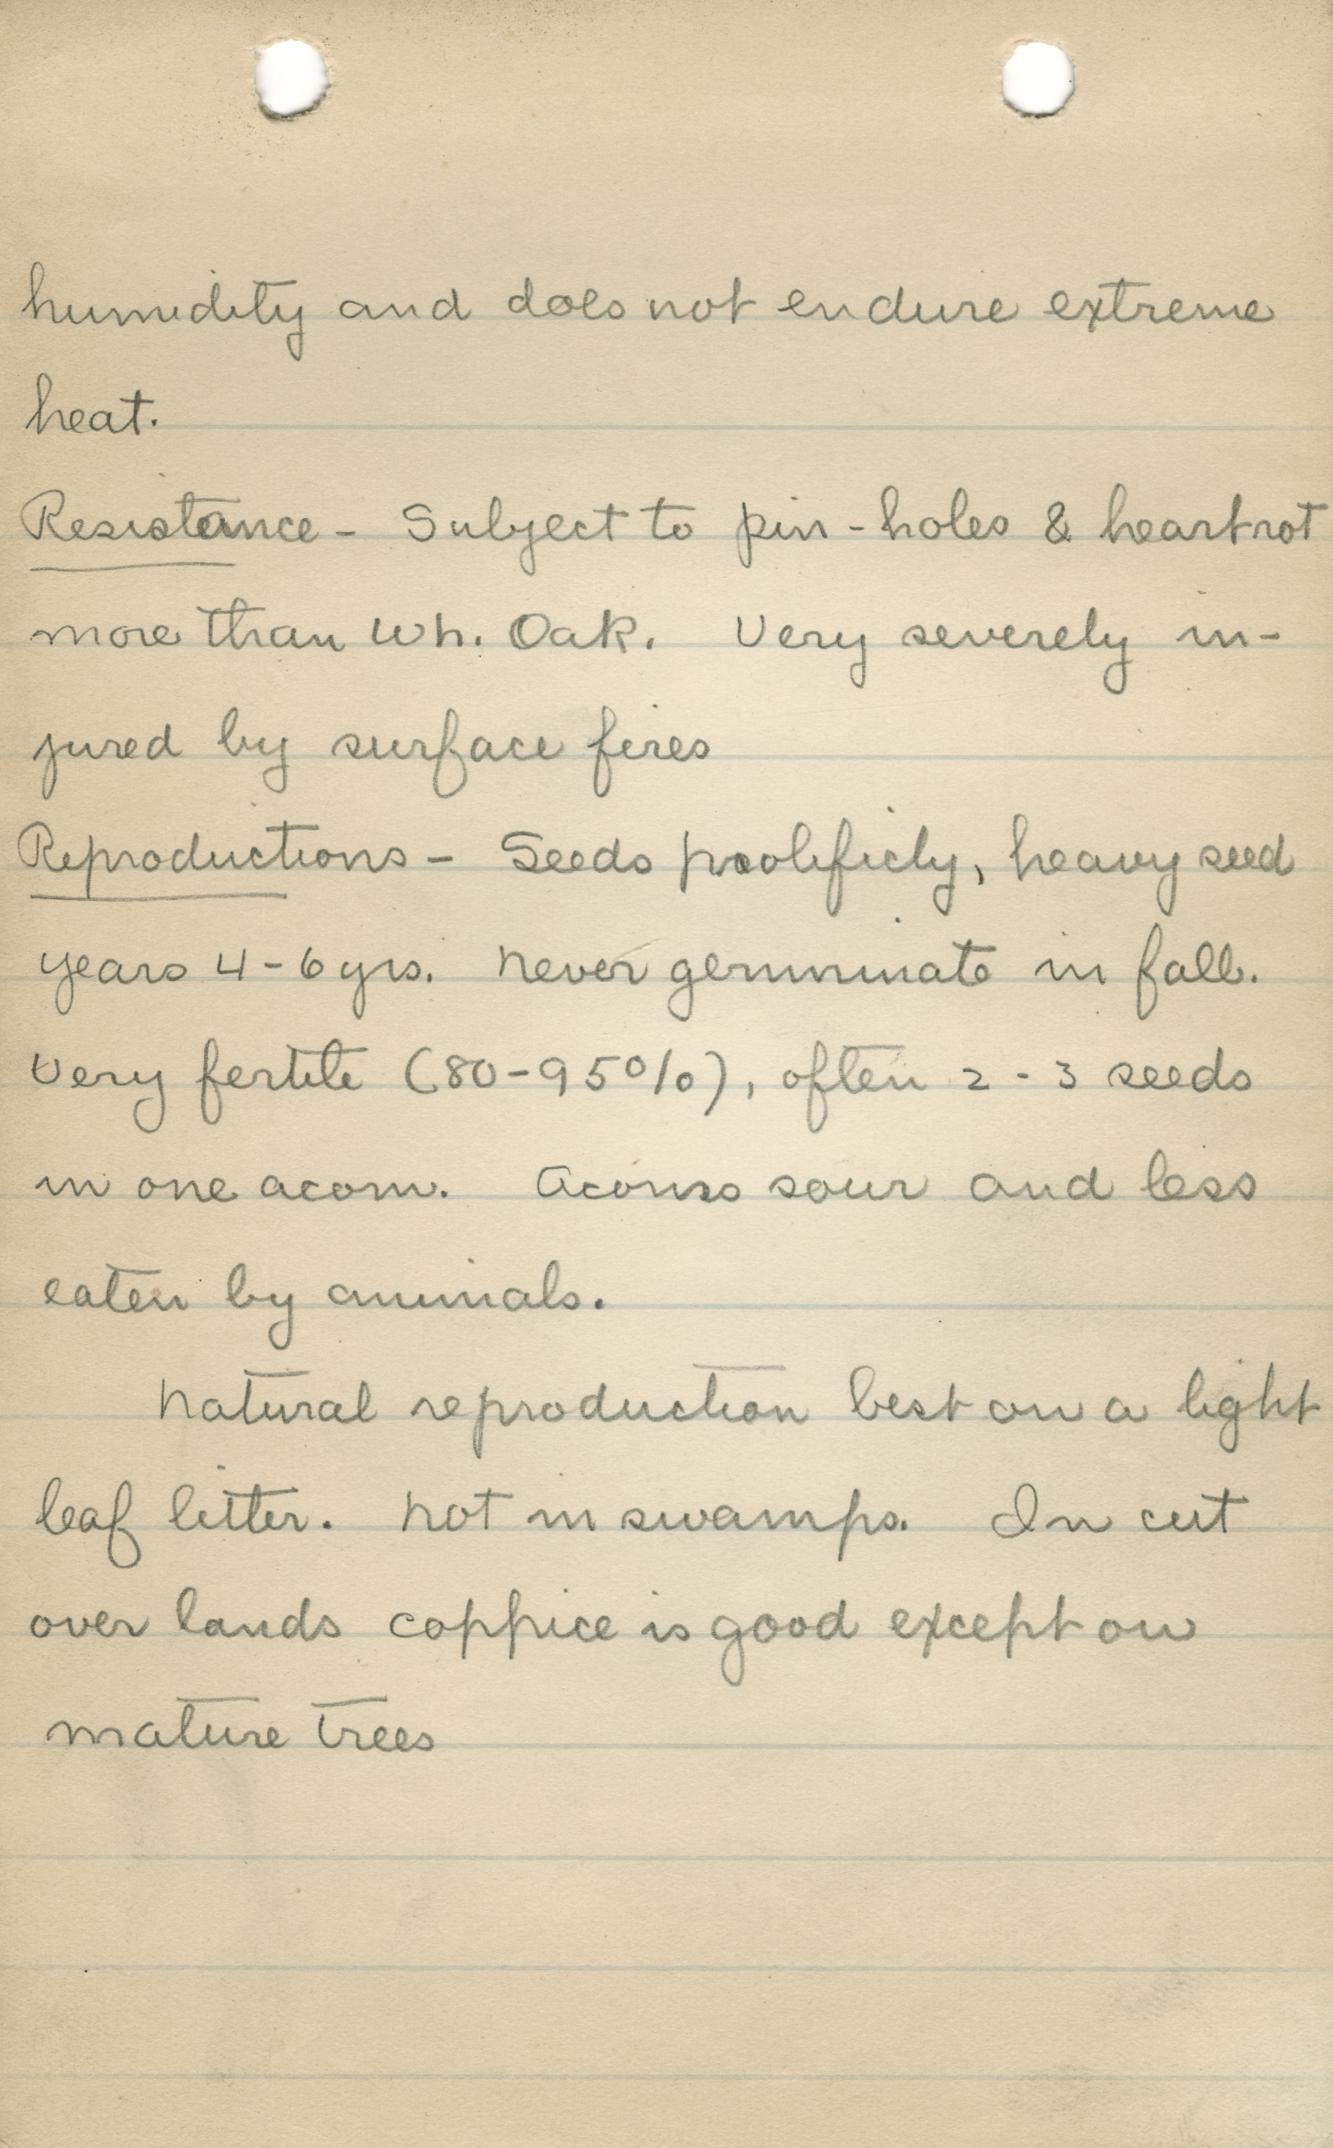 humidity and does not endure extreme
heat.
Resistance - Subject to pin-holes & heartrot
more than Wh. Oak. Very severely in-
jured by surface fires
Reproductions - Seeds prolificly, heavy seed
years 4-6 yrs. never germinate in fall.
Very fertile (80-95%), often 2-3 seeds
in one acorn. Acorns sour and less
eaten by animals.
Natural reproduction best on a light
leaf litter. Not in swamps. In cut
over lands coppice is good except on
mature trees